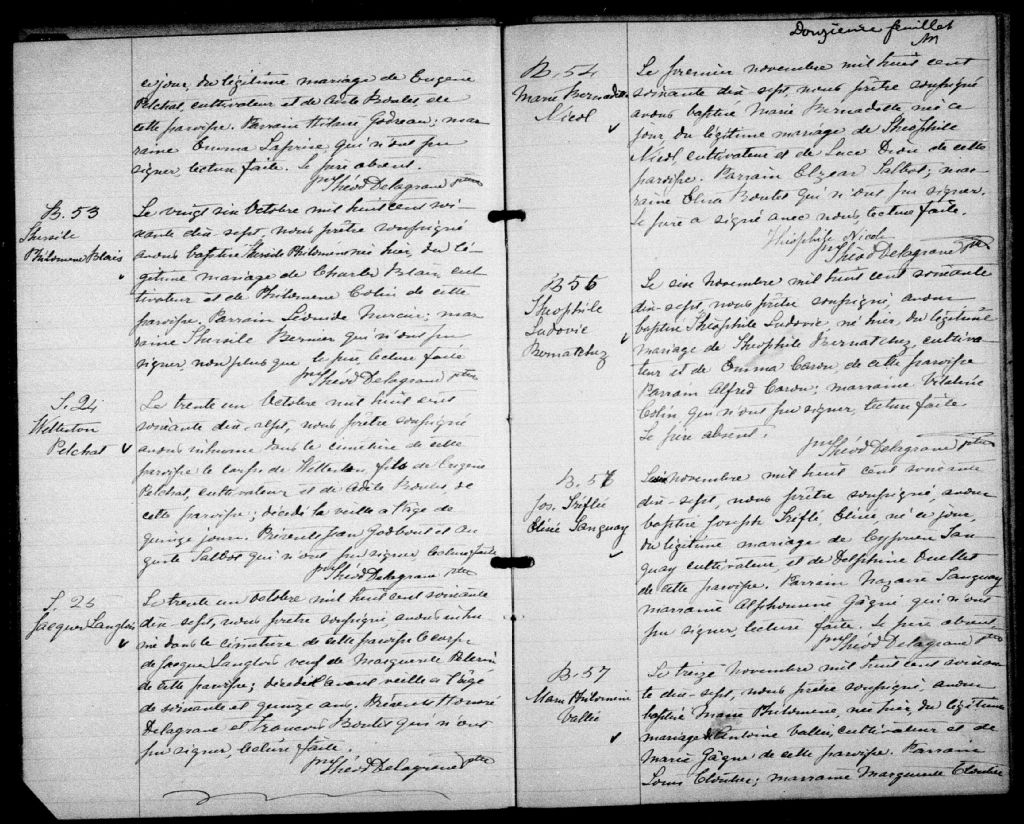 ce jour, du légitime mariage de Eugène
Pelchat, cultivateur et de Adèle Boulet, de
cette paroisse. Parrain Hilaire Godreau; mar-
raine Emma Laprise qui n'ont pu
signer, lecture faite. Le père absent.
Théod Delagrave ptre
B. 53
Thersile
Philomène Blais
Le vingt six Octobre mil huit cent soi-
xante dix-sept, nous prêtre soussigné
avons baptisé Thersile Philomène née hier, du lé-
gitime mariage de Charles Blais, cul-
tivateur et de Philomène Colin de cette
paroisse. Parrain Léonide Mercier; mar-
raine Thersile Bernier qui n'ont pu
signer non plus que le père lecture faite
Théod Delagrave ptre
S. 24
Wellerton
Pelchat
Le trente un Octobre mil huit cent
soixante dix-sept, nous prêtre soussigné
avons inhumé dans le cimetière de cette
paroisse le corps de Wellerton, fils de Eugène
Pelchat, cultivateur et de Adèle Boulet, de
cette paroisse; décédé la veille à l'âge de
quinze jours. Présents Jean Godbout et Au-
guste Talbot qui n'ont pu signer, lecture faite
Théod Delagrave ptre
S. 25
Jacques Langlois
Le trente un Octobre mil huit cent soixante
dix-sept, nous prêtre soussigné, avons inhu-
mé dans le cimetière de cette paroisse le corps
de Jacques Langlois veuf de Marguerite Pelerin
de cette paroisse; décédé l'avant veille à l'âge
de soixante et quinze ans. Présents Honoré
Delagrave et François Boulet qui n'ont
pu signer, lecture faite.
Théod Delagrave ptre
Douzième feuillet
B. 54
Marie Bernadette
Nicol
Le premier novembre mil huit cent
soixante dix-sept, nous prêtre soussigné
avons baptisé Marie Bernadette née ce
jour du légitime mariage de Théophile
Nicol, cultivateur et de Luce Dion de cette
paroisse. Parrain Elzear Talbot; mar-
raine Elina Boulet qui n'ont pu signer.
Le père a signé avec nous, lecture faite.
Théophile Nicole
Théod Delagrave ptre
B 55
Théophile
Ludovic
Bernatchez
Le six Novembre mil huit cent soixante
dix-sept, nous prêtre soussigné, avons
baptisé Théophile Ludovic, né hier, du légitime
mariage de Théophile Bernatchez, cultiva-
teur et de Emma Caron, de cette paroisse
Parrain Alfred Caron; marraine Vitaline
Colin qui n'ont pu signer, lecture faite.
Le père absent.
Théod Delagrave ptre
B. 56
Jos. Tréflé
Eliné Tanguay
Le Novembre mil huit cent soixante
dix-sept, nous prêtre soussigné, avons
baptisé Joseph Tréflé, Eliné, né ce jour,
du légitime mariage de Cyprien Tan-
guay cultivateur, et de Delphine Ouellet
de cette paroisse. Parrain Nazaire Tanguay
marraine Alphonsine Gagné qui n'ont
pu signer, lecture faite. Le père absent.
Théod Delagrave ptre
B. 57
Marie Philomène
Vallée
Le treize Novembre mil huit cent soixan-
te dix-sept, nous prêtre soussigné, avons
baptisé Marie Philomène, née hier, du légitime
mariage d'Antoine Vallée, cultivateur et de
Marie Gagné de cette paroisse. Parrain
Louis Cloutier; marraine Marguerite Cloutier